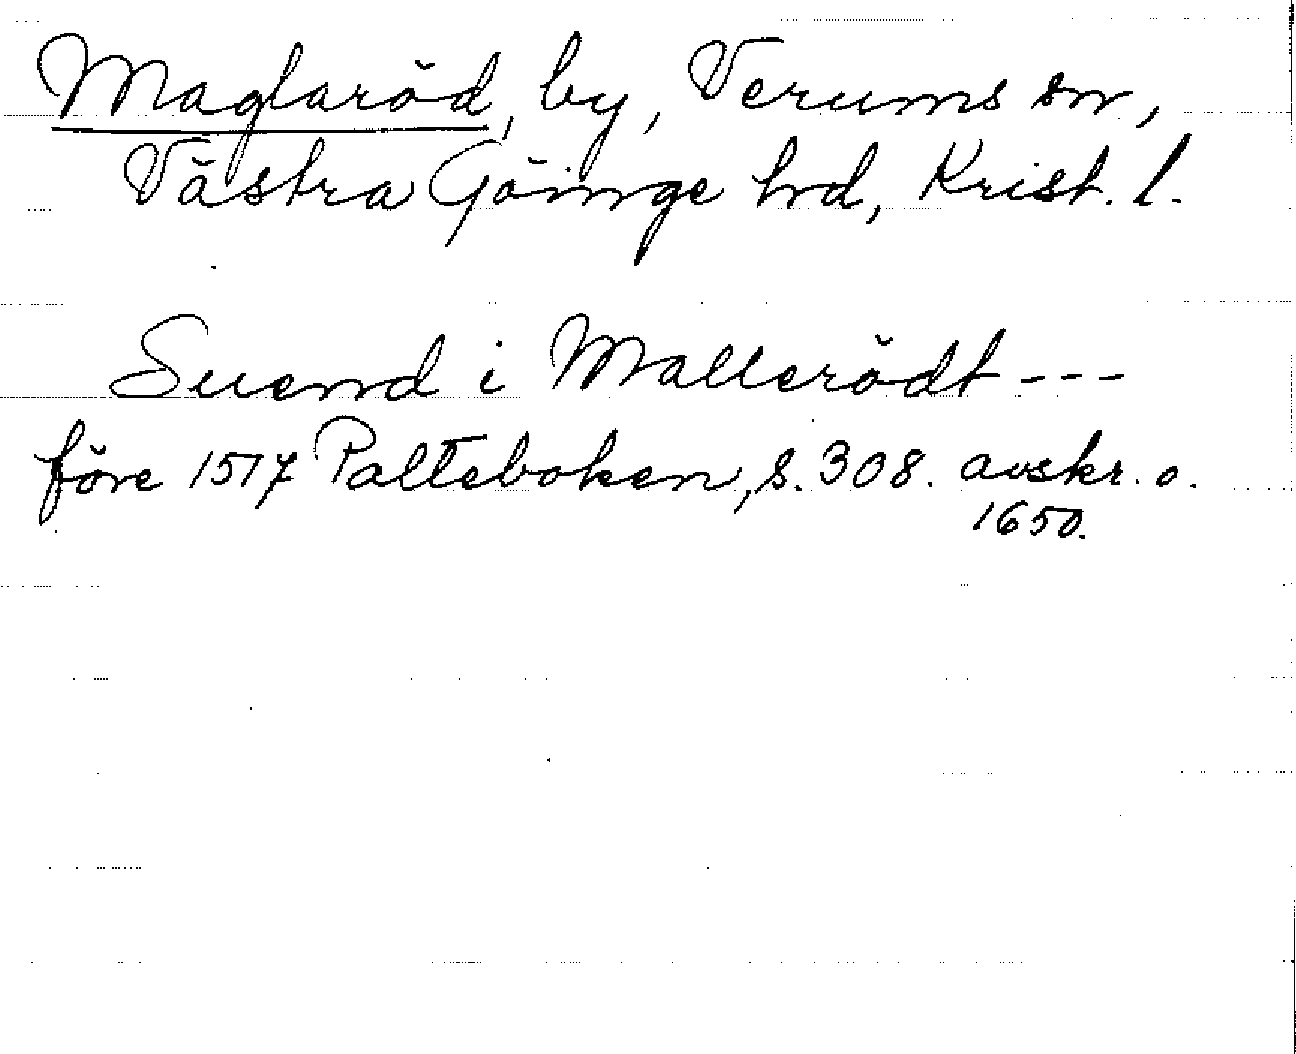 Maglaröd, by, Verums sn,
Västra Göinge hd, Krist. l.
Suend i Mallerödt ---
före 1517 Palteboken, s. 308. avskr. o.
1650.